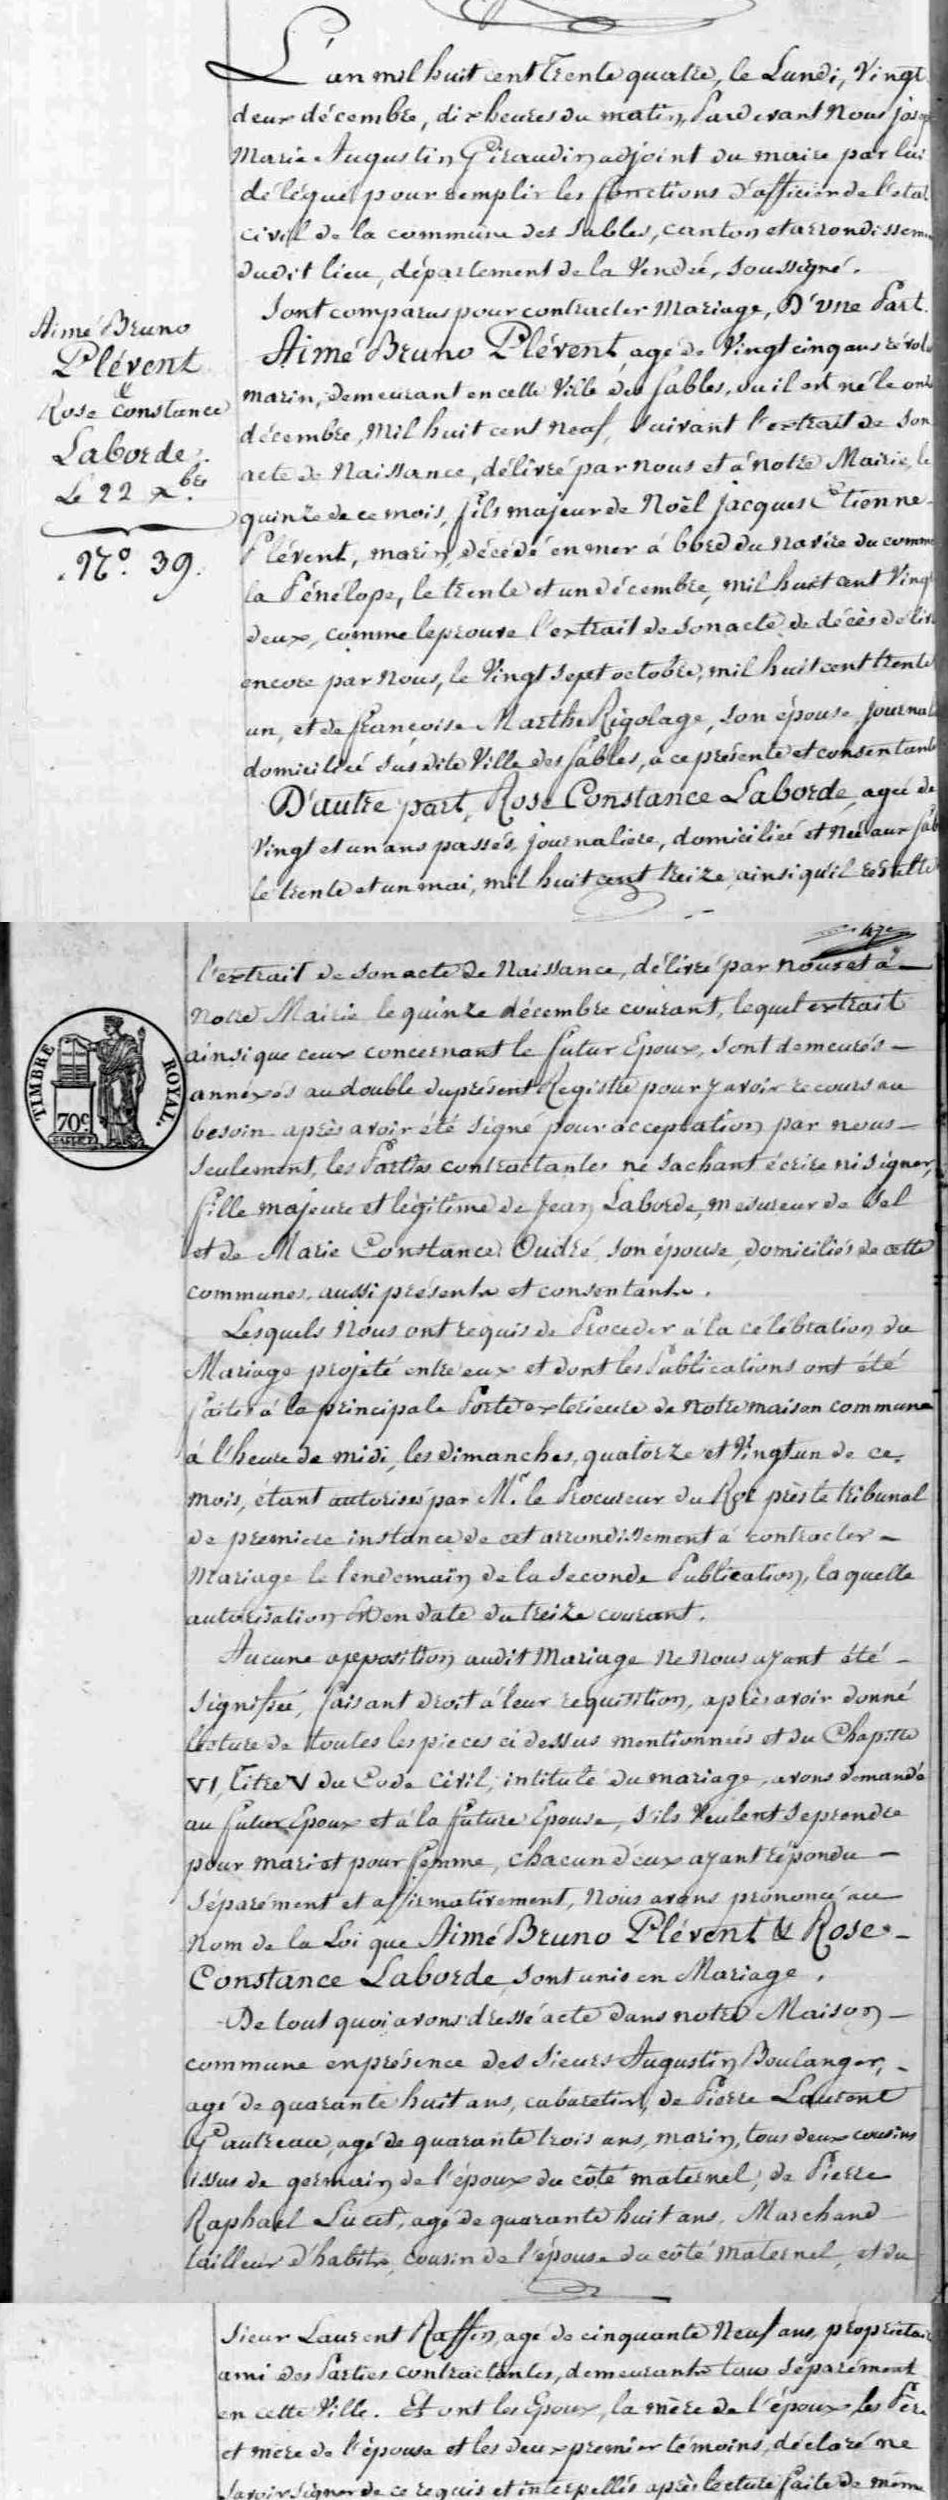 L'an mil huit cent trente quatre, le Lundi, Vingt
deux décembre, dix heures du matin, Pardevant Nous Jose
Marie Augustin Giraudin adjoint du maire par lui
délégué pour remplir les fonctions d'officier de l'etat
civil de la commune des Sables, canton et arrondissem
dudit lieu, département de la Vendée, soussigné.
Sont comparus pour contracter Mariage, D'une Part.
Aimé Bruno Plévent, agé de Vingt cinq ans révol
marin, demeurant en cette Ville des Sables, ou il est né le onze
décembre, Mil huit cent neuf, suivant l'extrait de son
acte de Naissance, délivré par nous et à notre Mairie, le
quinze de ce mois, fils majeur de Noël Jacques Etienne
Plévent, marin, décédé en mer à bord du navire du comme
la Pénélope, le trente et un décembre, mil huit cent Vingt
deux, comme le prouve l'extrait de son acte de décès déliv
encore par Nous, le Vingt sept octobre, mil huit cent trente
un, et de françoise Marthe Rigolage, son épouse, journal
domiciliée susdite Ville des Sables, à ce présente et consentante
D'autre part, Rose Constance Laborde, agée de
Vingt et un ans passés, journaliere, domiciliée et Née aux Sab
le trente et un mai, mil huit cent treize, ainsi qu'il resulte
Aimé Bruno
Plévent
&
Rose Constance
Laborde.
Le 22 Xbre.
N.° 39.
47e
l'extrait de son acte de Naissance, délivré par nous et à
Notre Mairie le quinze décembre courant, lequel extrait
ainsi que ceux concernant le futur Epoux, sont demeurés
annéxés au double du présent Registre pour y avoir recours au
besoin après avoir été signé pour acceptation par nous
seulement, les Parties contractantes ne sachant écrire ni signer,
fille majeure et légitime de Jean Laborde, mesureur de sel
et de Marie Constance Oudré, son épouse, domiciliés de cette
commune, aussi présents et consentants.
TIMBRE ROYAL.
70c
Lesquels Nous ont requis de Proceder à la célébration du
Mariage projeté entre eux et dont les Publications ont été
faites à la principale Porte exterieure de Notre maison commune
à l'heure de midi, les dimanches, quatorze et Vingt un de ce
mois, étant autorisés par Mr. le Procureur du Roi près le tribunal
de premiere instance de cet arrondissement à contracter
Mariage le lendemain de la seconde Publication, laquelle
autorisation est en date du treize courant.
Aucune opposition audit Mariage ne Nous ayant été
signifiée, faisant droit à leur requisition, après avoir donné
lecture de toutes les pieces ci dessus mentionnées et du Chapitre
VI, Titre V du Code civil, intitulé du mariage, avons demandé
au futur Epoux et à la future Epouse, s'ils Veulent se prendre
pour mari et pour femme, chacun d'eux ayant répondu
séparément et affirmativement, Nous avons prononcé au
Nom de la Loi que Aimé Bruno Plévent & Rose
Constance Laborde, sont unis en Mariage.
De tout quoi avons dressé acte dans notre Maison
commune en présence des Sieurs Augustin Boulanger,
agé de quarante huit ans, cabaretier, de Pierre Laurent
Gautreau, agé de quarante trois ans, marin, tous deux cousins
issus de germain de l'époux du côté maternel; de Pierre
Raphael Lucet, agé de quarante huit ans, Marchand
tailleur d'habits, cousin de l'épouse du côté maternel, et du
Sieur Laurent Raffin, agé de cinquante Neuf ans, propriétair
ami des Parties contractantes, demeurants tous séparément
en cette Ville. Et ont les Epoux, la mère de l'époux, les Père
et mere de l'épouse et les deux premier témoins, déclaré ne
savoir signer de ce requis et interpellés après lecture faite de même